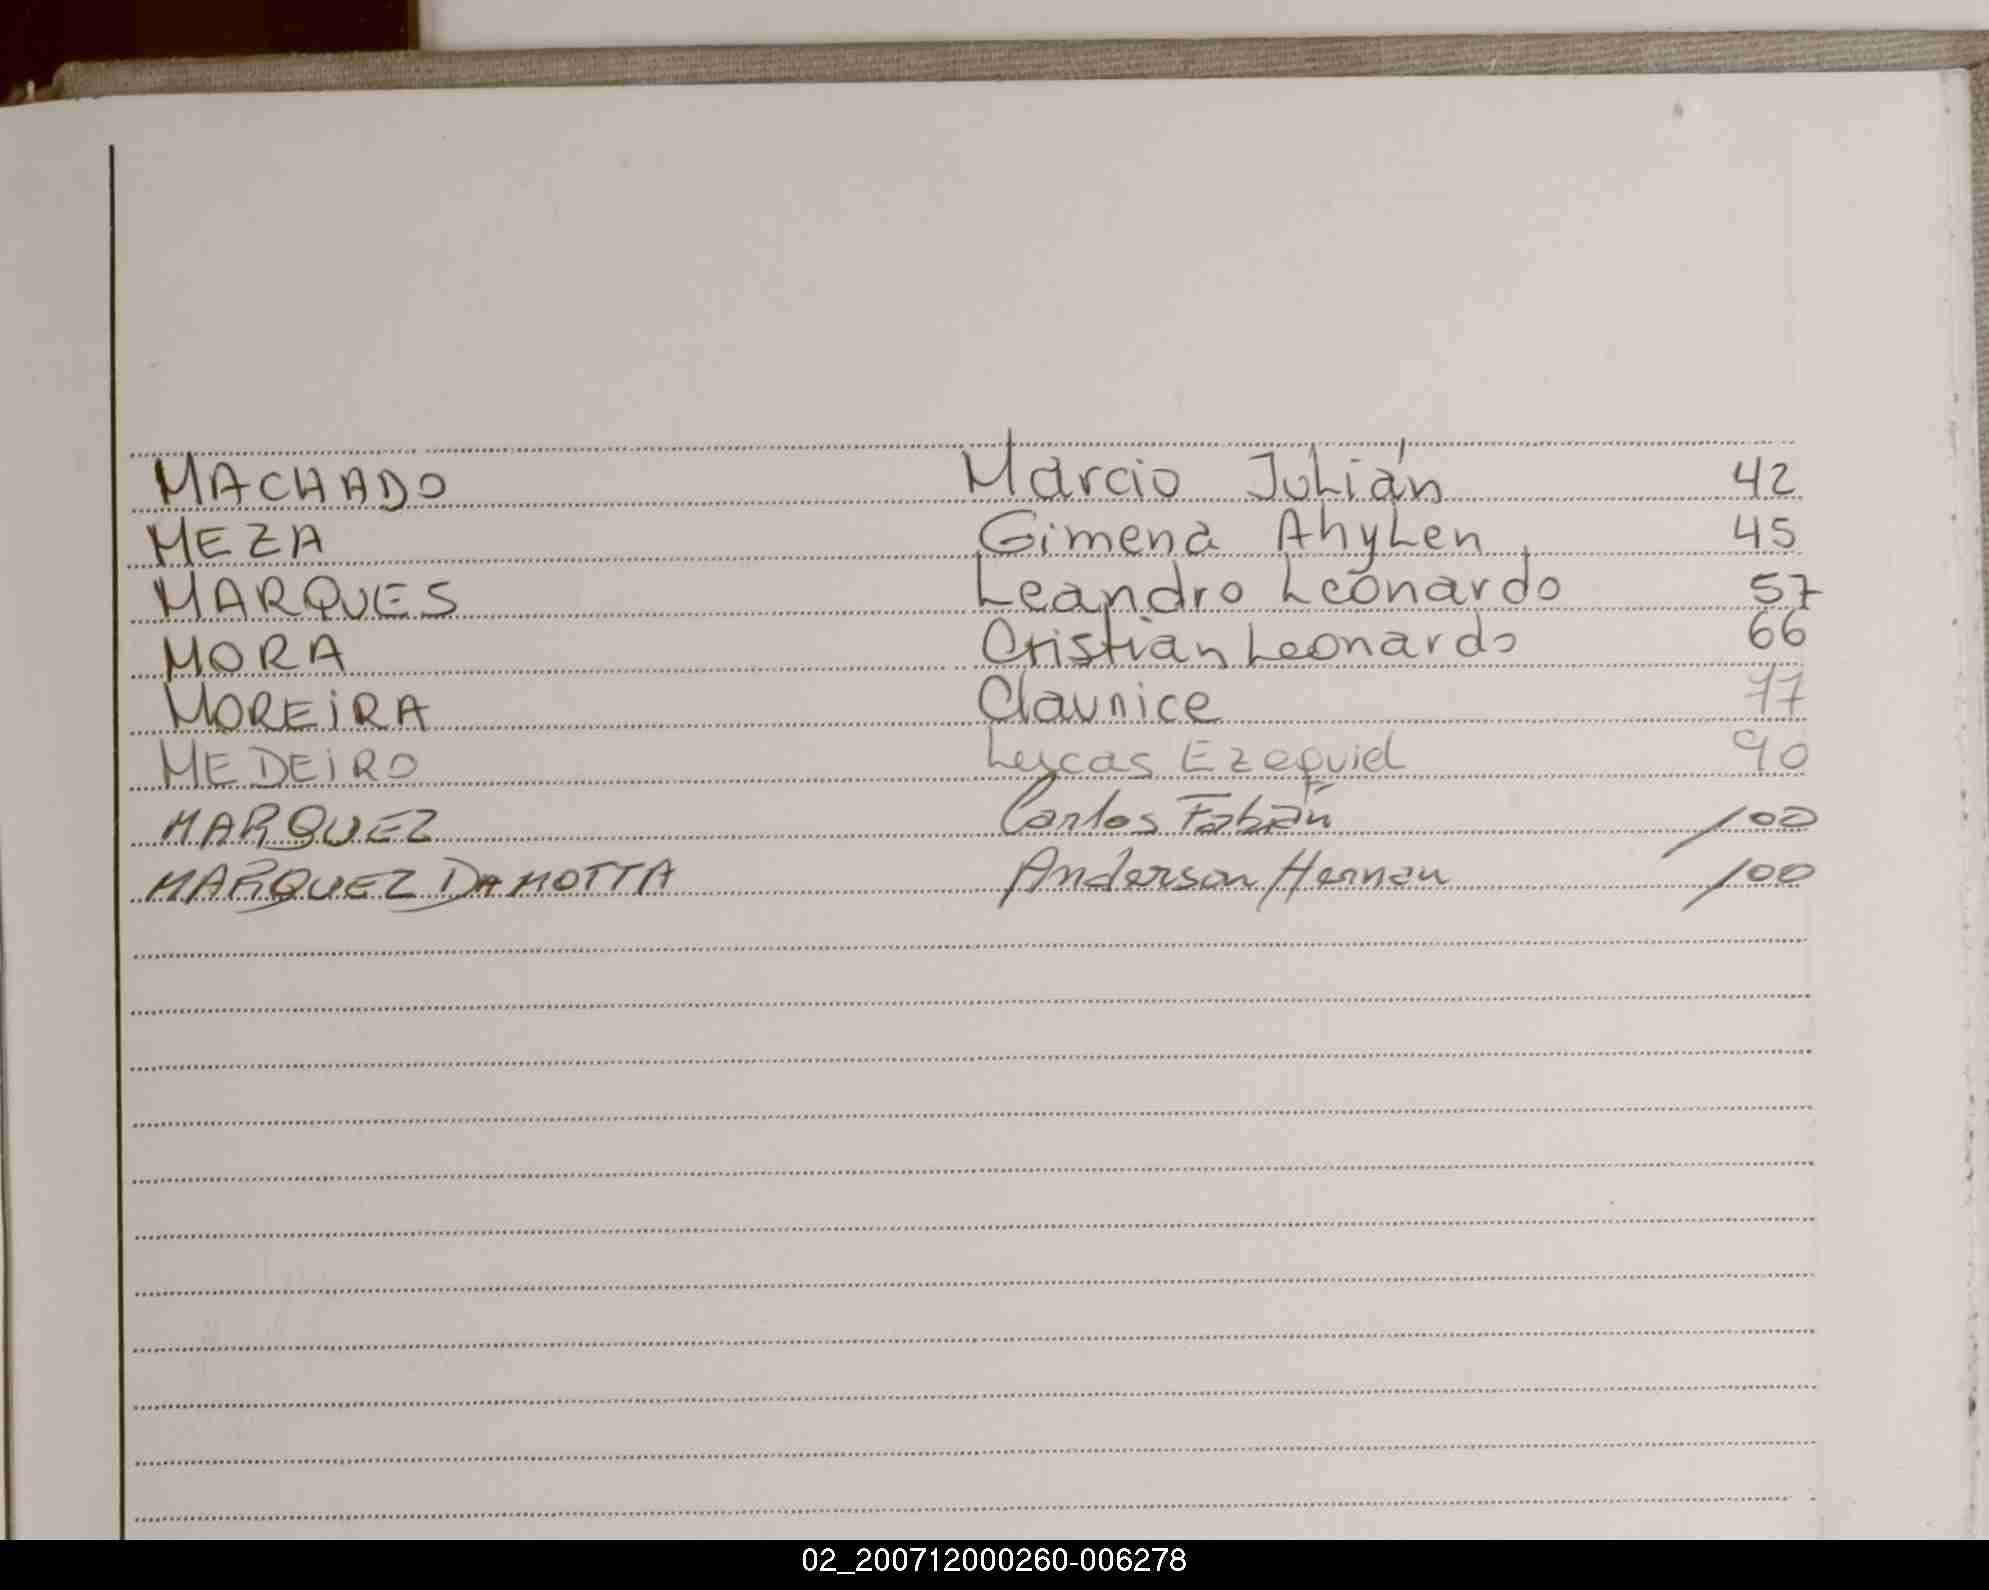 MACHADO Marcio Julián 42
MEZA Gimena Ahylen 45
MARQUES Leandro Leonardo 57
MORA Cristian Leonardo 66
MOREIRA Claunice 77
MEDEIRO Lucas Ezequiel 90
MARQUEZ Carlos Fabián 100
MARQUEZ DA MOTTA Anderson Hernan 100
02_200712000260-006278